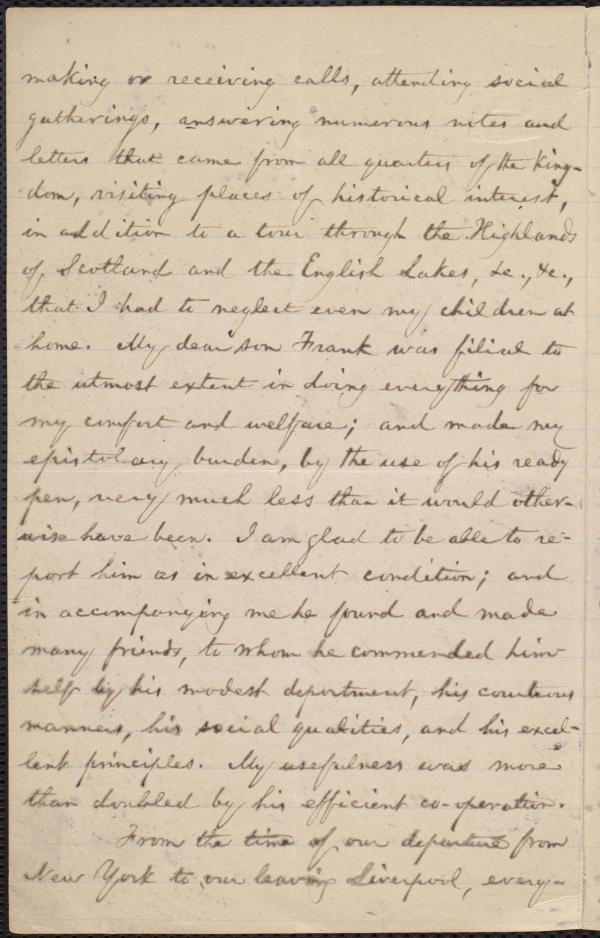 making or receiving calls, attending social
gatherings, answering numerous notes and
letters that came from all quarters of the King-
dom, visiting places of historical interest,
in addition to a tour through the Highlands
of Scotland and the English Lakes, &c., &c.,
that I had to neglect even my children at
home. My dear son Frank was filial to
the utmost extent in doing everything for
my comfort and welfare; and made my
epistolary burden, by the use of his ready
pen, very much less than it would other-
wise have been. I am glad to be able to re-
port him as in excellent condition; and
in accompanying me he found and made
many friends, to whom he commended him-
self by his modest deportment, his courteous
manners, his social qualities, and his excel-
lent principles. My usefulness was more
than doubled by his efficient co-operation.
From the time of our departure from
New York to our leaving Liverpool, every-